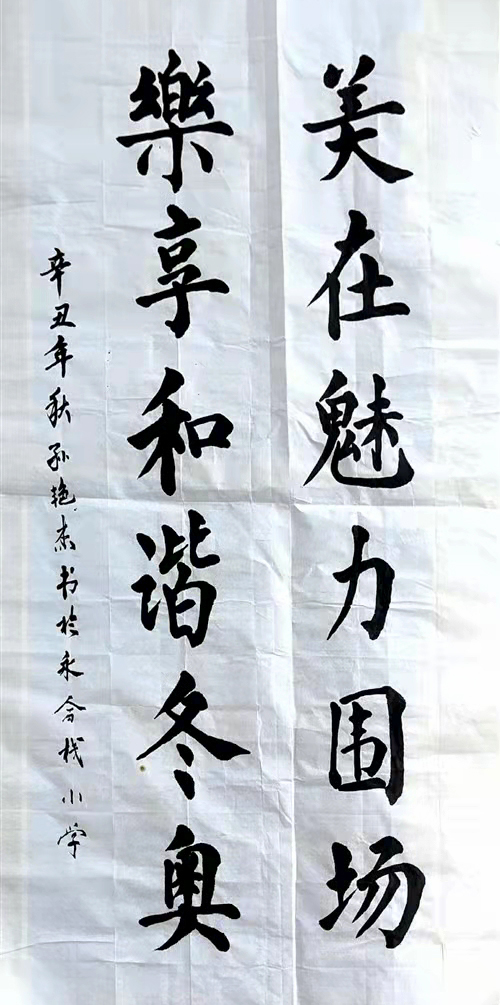 美在魅力围场
樂享和谐冬奥
辛丑年秋孙艳杰书于永合栈小学